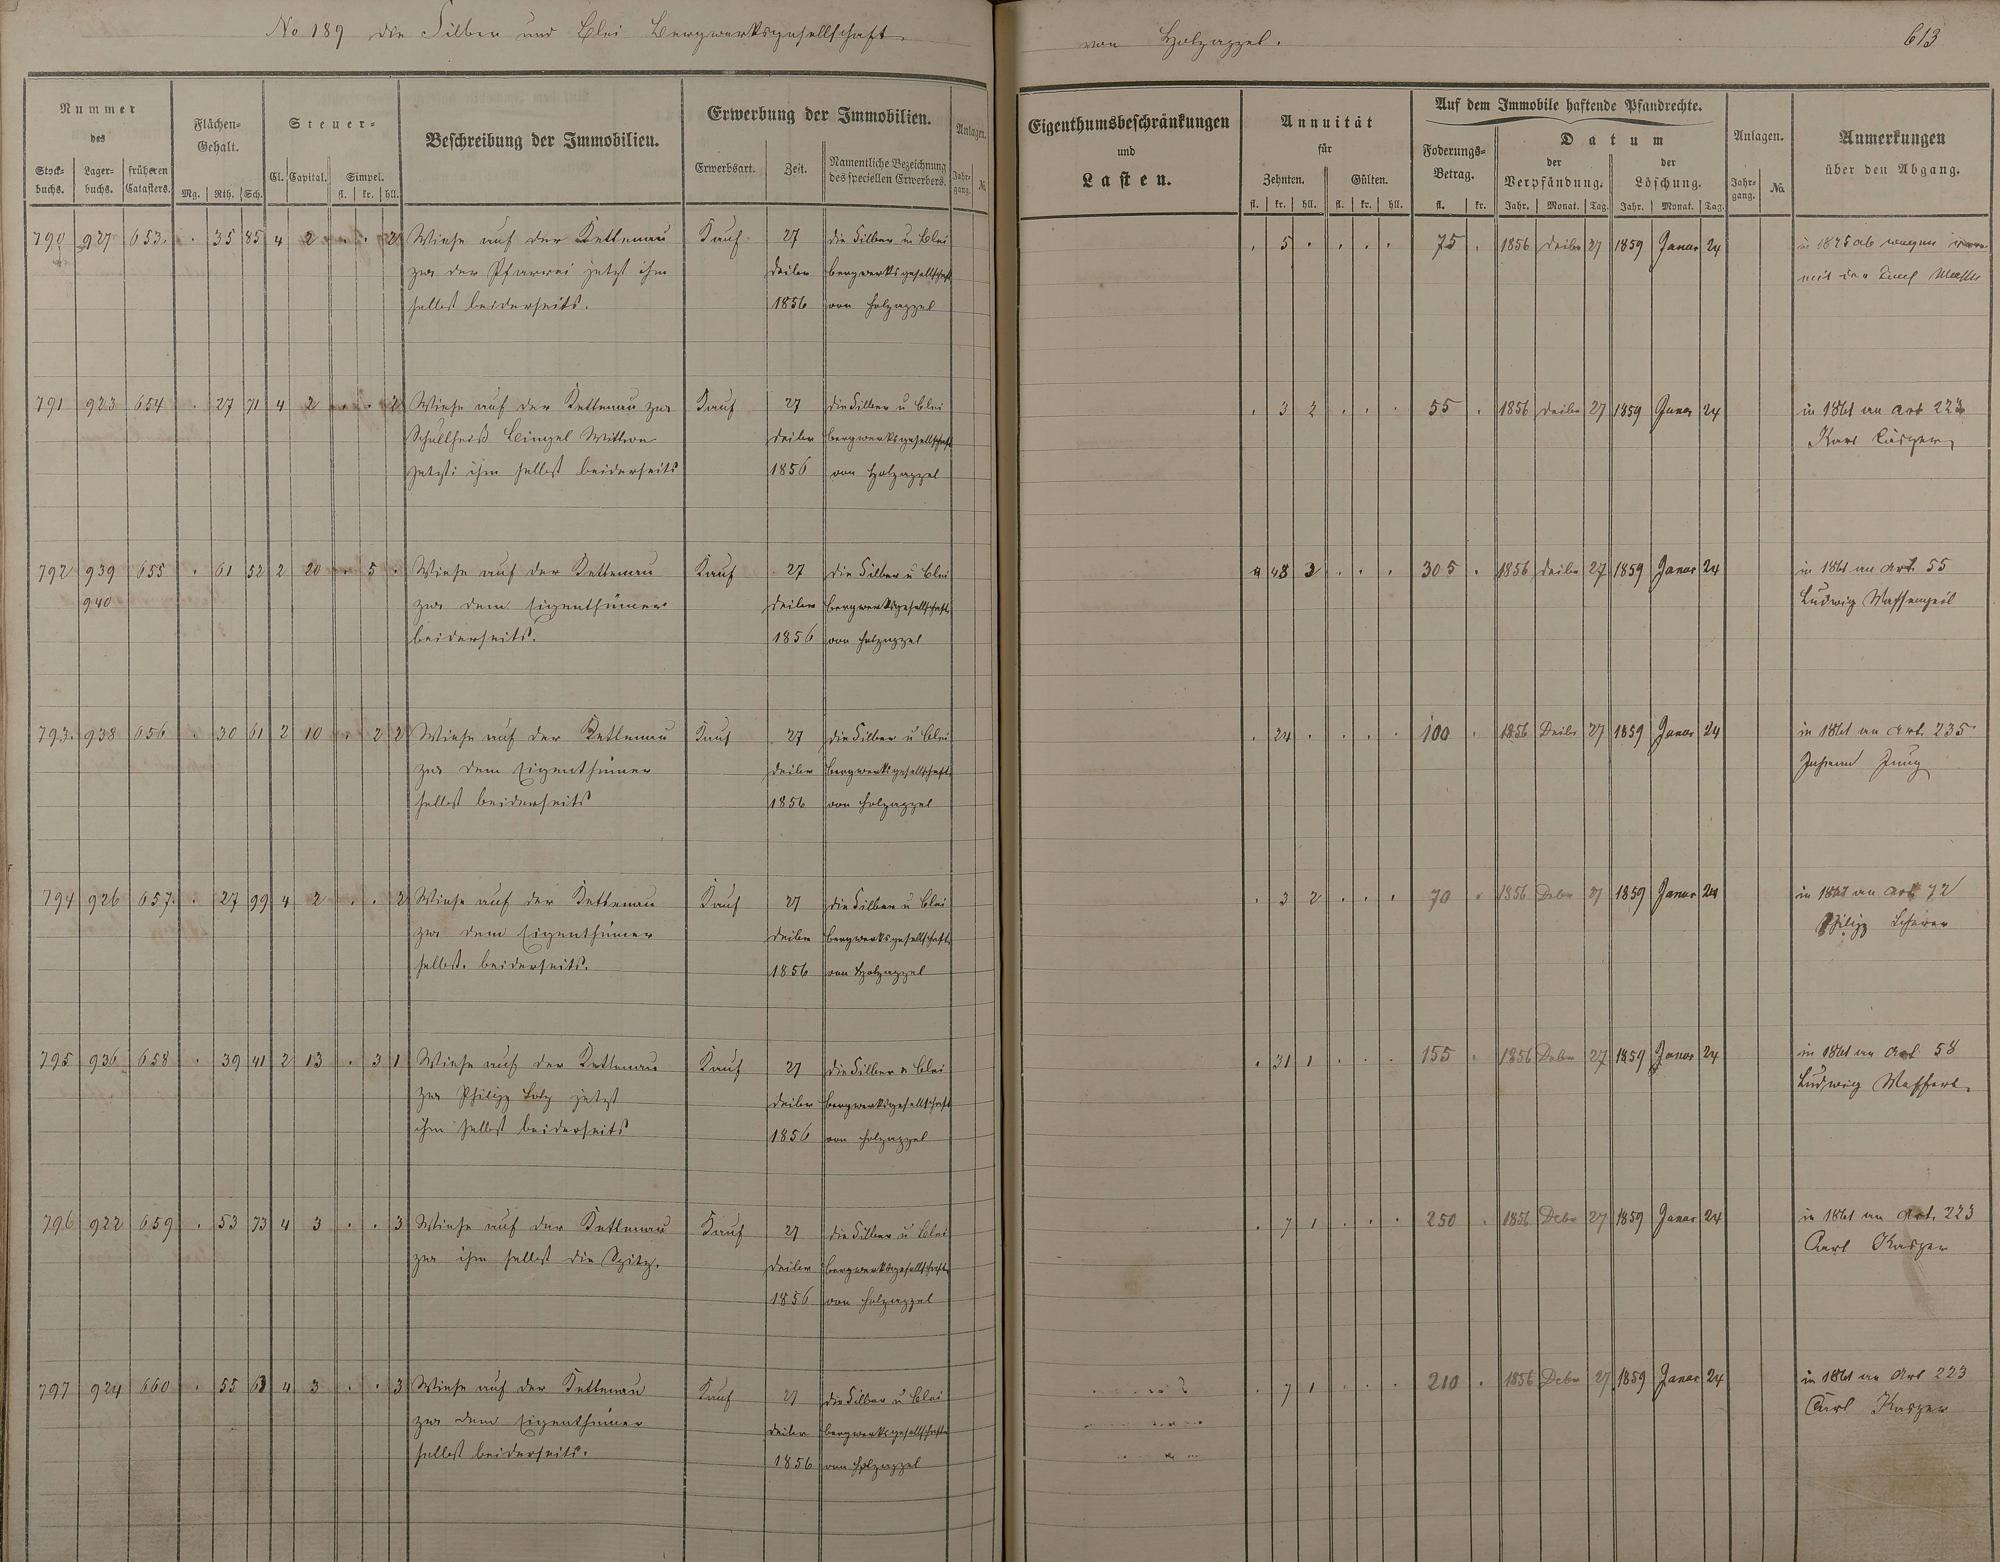 No 189 die Silber und Blei Bergwerksgesellschaft
von Holzappel.
613
Nummer des
Stock-buchs. Lager-buchs. früheren Catasters.
Flächen-Gehalt.
Mg. Rth. Sch.
Steuer-
Cl. Capital. Simpel.
fl. kr. hll.
Beschreibung der Immobilien.
Erwerbung der Immobilien.
Erwerbsart. Zeit. Namentliche Bezeichnung des speciellen Erwerbers.
Anlagen.
Jahr-gang. №
Eigenthumsbeschränkungen
und
Lasten.
Annuität
für
Zehnten. Gülten.
fl. kr. hll. fl. kr. hll.
Auf dem Immobile haftende Pfandrechte.
Foderungs-Betrag.
fl. kr.
Datum
der Verpfändung. der Löschung.
Jahr. Monat. Tag. Jahr. Monat. Tag.
Anlagen.
Jahr-gang. No.
Anmerkungen
über den Abgang.
790 927 653. . 35 85 4 2 . . 2 Wiese auf der Kettenau Kauf 27 die Silber u Blei . 5 . . . . 75 . 1856 Decbr 27 1859 Januar 24
zw der Pfarrei jetzt ihm Decbr Bergwerksgesellschaft
selbst beiderseits. 1856 von Holzappel
791 923 654 . 27 71 4 2 . . 2 Wiese auf der Kettenau zw Kauf 27 die Silber u Blei . 3 2 . . . 55 . 1856 Decbr 27 1859 Januar 24 in 1861 an Art 223
Schultheiß Wittwe Decbr Bergwerksgesellschaft Karl
jetzt ihm selbst beiderseits 1856 von Holzappel
792 939 655 . 61 52 2 20 . 5 . Wiese auf der Kettenau Kauf 27 die Silber u Blei 48 3 . . . 305 . 1856 Decbr 27 1859 Januar 24 in 1861 an Art 55
940 zw dem Eigenthümer Decbr Bergwerksgesellschaft Ludwig
beiderseits. 1856 von Holzappel
793. 938 656 . 30 61 2 10 . 2 2 Wiese auf der Kettenau Kauf 27 die Silber u Blei . 24 . . . . 100 . 1856 Decbr 27 1859 Januar 24 in 1861 an Art. 235
zw dem Eigenthümer Decbr Bergwerksgesellschaft Johann Jung
selbst beiderseits 1856 von Holzappel
794 926 657. . 27 99 4 2 . . 2 Wiese auf der Kettenau Kauf 27 die Silber u Blei . 3 2 . . . 70 . 1856 Debr 27 1859 Januar 24 in 1861 an Art 72
zw dem Eigenthümer Decbr Bergwerksgesellschaft Philipp
selbst. beiderseits. 1856 von Holzappel
795 936 658 . 39 41 2 13 . 3 1 Wiese auf der Kettenau Kauf 27 die Silber u Blei . 31 1 . . . 155 . 1856 Debr 27 1859 Januar 24 in 1861 an Art 58
zw Philipp jetzt Decbr Bergwerksgesellschaft Ludwig
ihm selbst beiderseits 1856 von Holzappel
796 922 659 . 53 73 4 3 . . 3 Wiese auf der Kettenau Kauf 27 die Silber u Blei . 7 1 . . . 250 . 1856 Debr 27 1859 Januar 24 in 1861 an Art. 223
zw ihm selbst die Spitz. Decbr Bergwerksgesellschaft Carl Kasper
1856 von Holzappel
797 924 660 . 55 63 4 3 . . 3 Wiese auf der Kettenau Kauf 27 die Silber u Blei . 7 1 . . . 210 . 1856 Debr 27 1859 Januar 24 in 1861 an Art 223
zw dem Eigenthümer Decbr Bergwerksgesellschaft Carl Kasper
selbst beiderseits. 1856 von Holzappel